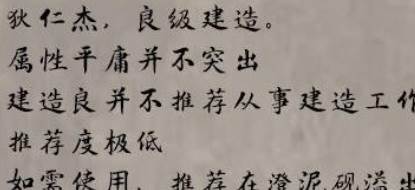 狄仁杰，良级建造。
属性平庸并不突出
建造良并不推荐从事建造工作
推荐度极低
如需使用，推荐在澄泥砚溢出